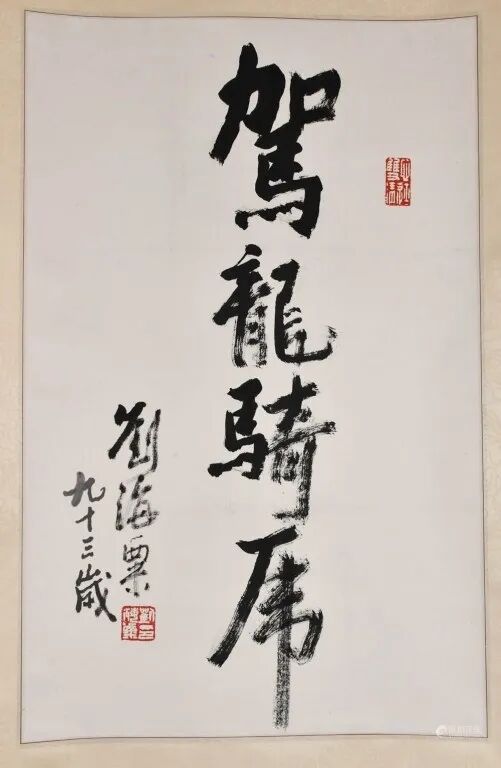 駕龍騎虎
劉海粟
九十三歲